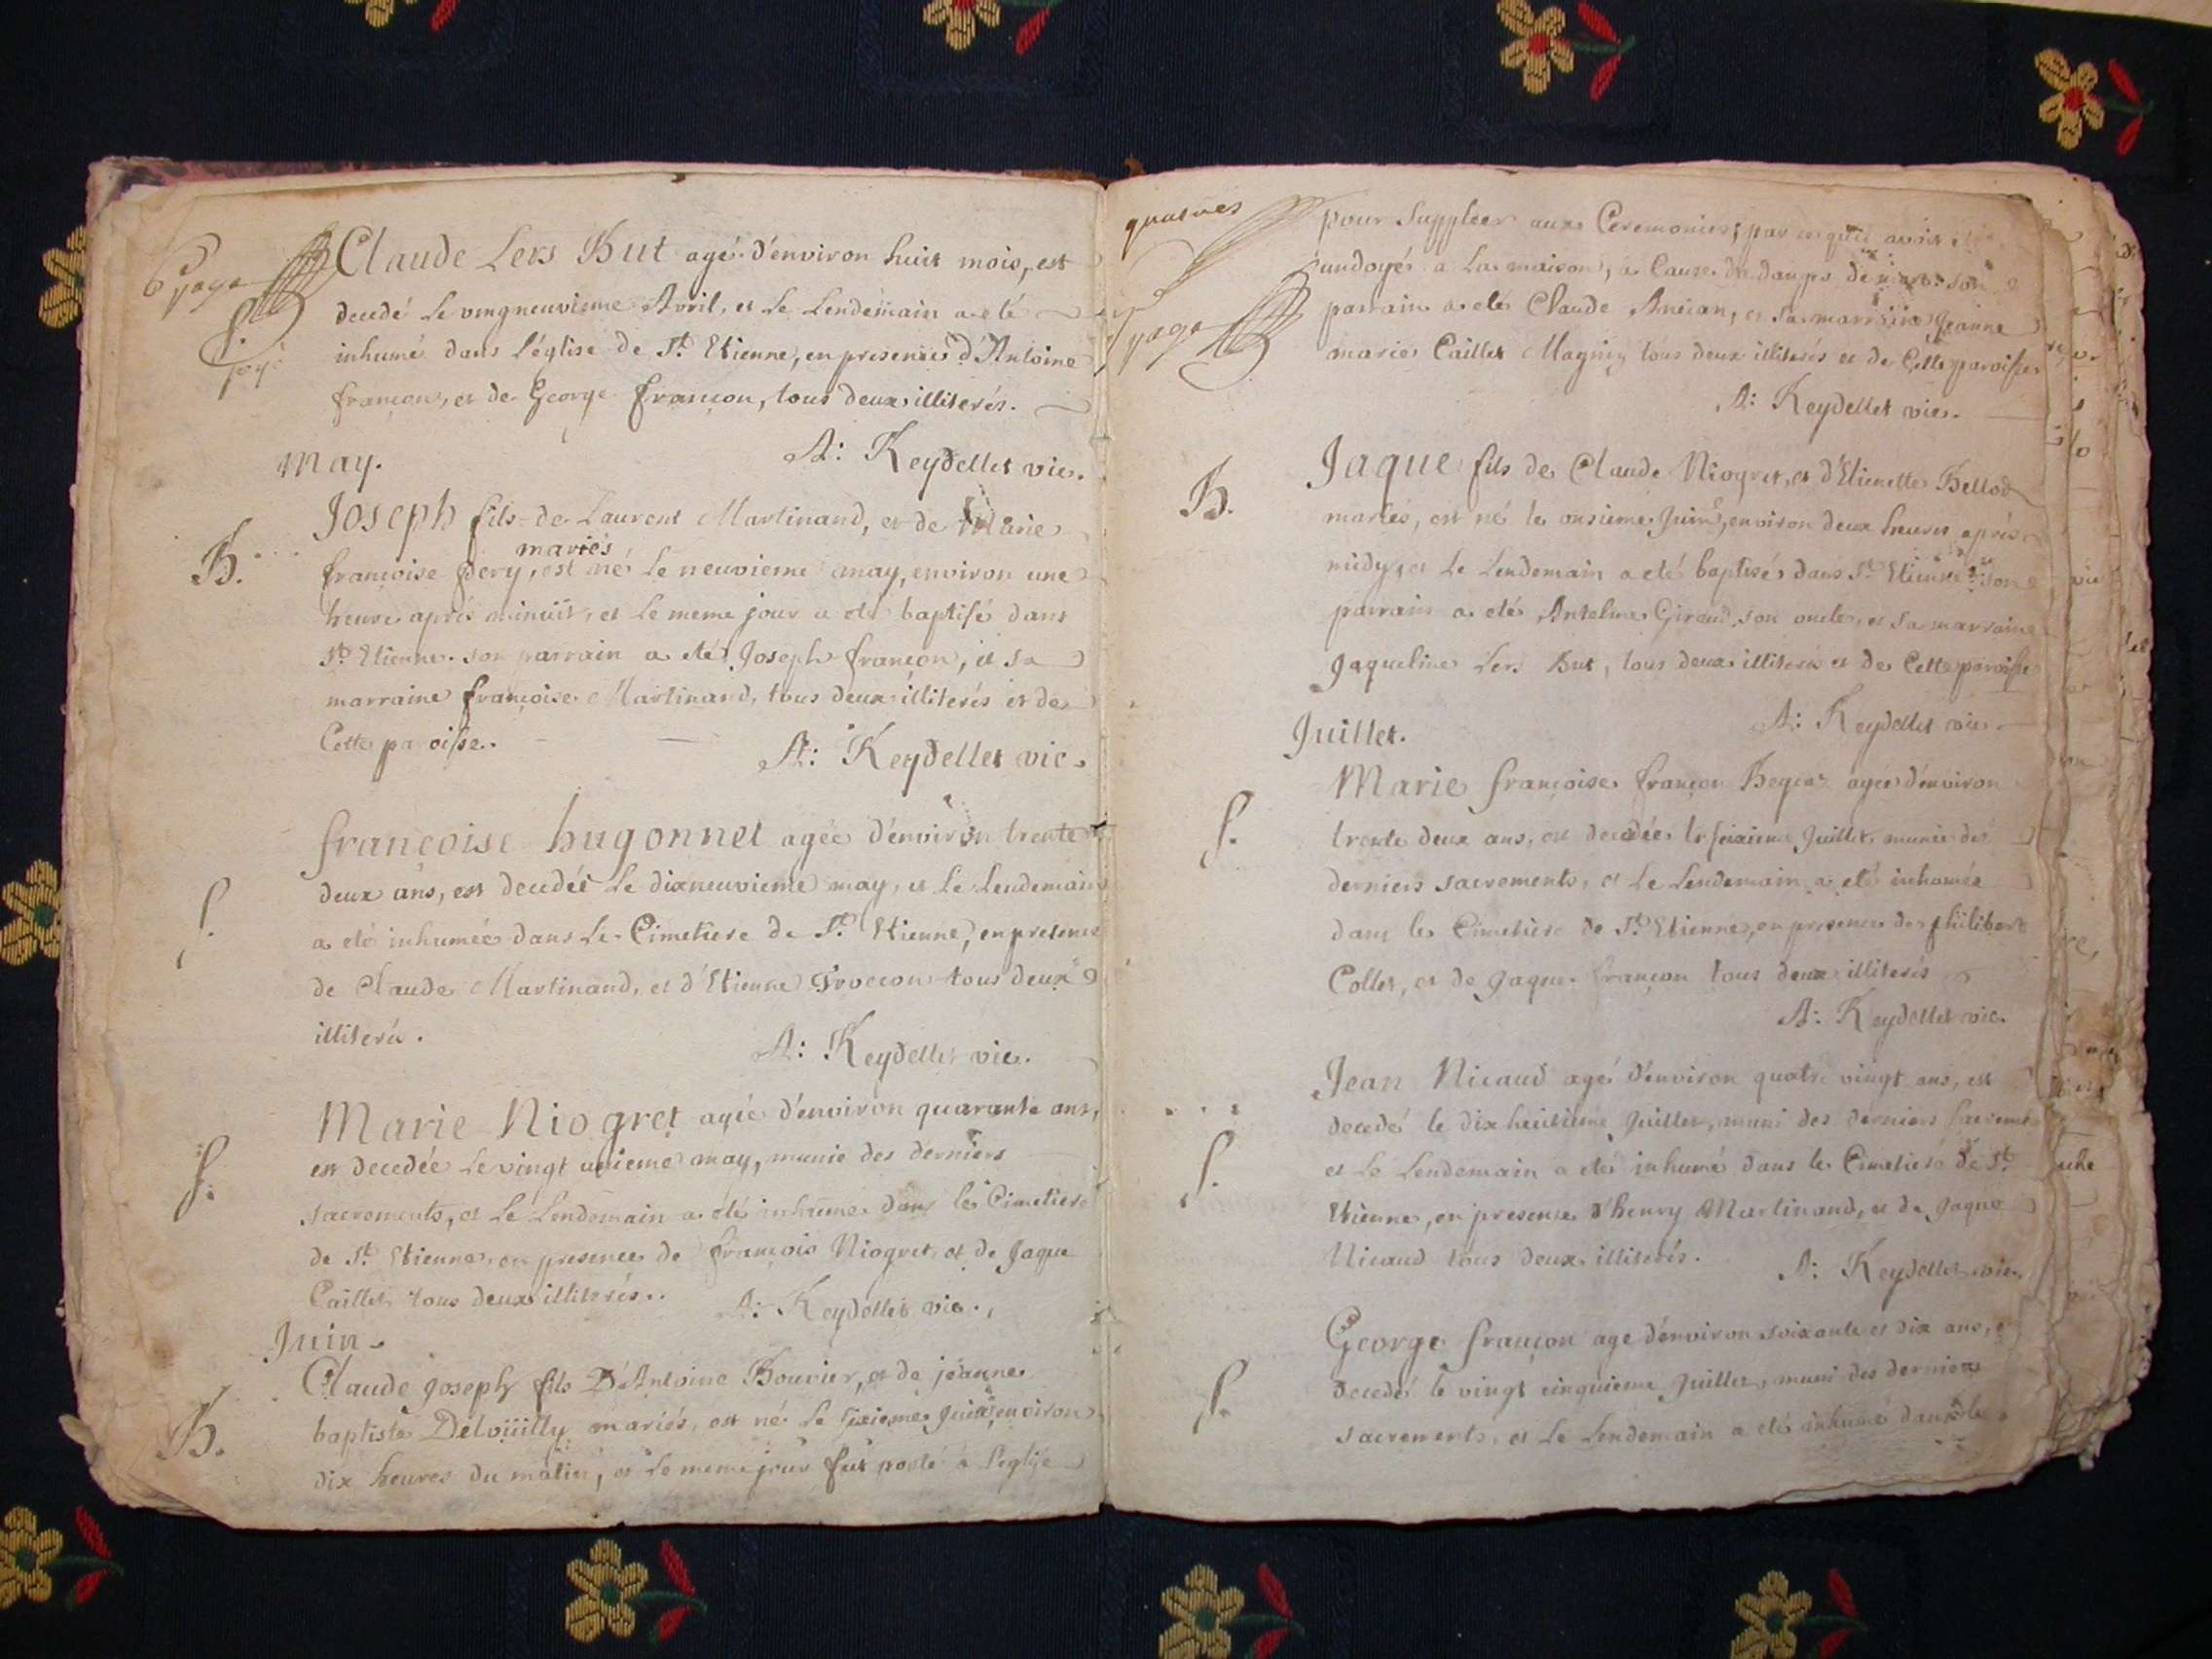 6 page
Claude Lers But agé d'environ huit mois, est
decedé le vingneuvieme Avril, et le Lendemain a eté
inhumé dans l'église de St. Etienne, en presence d'Antoine
françon, et de George françon, tous deux illiterés.
A: Keydellet vic.
may.
B.
Joseph fils de Laurent Martinand, et de Marie
mariés
françoise pery, est né le neuvieme may, environ une
heure aprés minuit, et le meme jour a eté baptisé dans
St. Etienne. son parrain a eté Joseph françon, et sa
marraine françoise Martinand, tous deux illiterés et de
Cette paroisse.
A: Keydellet vic.
S.
françoise hugonnet agée d'environ trente
deux ans, est decedée le dixneuvieme may, et le Lendemain
a eté inhumée dans le Cimetiere de St. Etienne, en presence
de Claude Martinand, et d'Etienne tous deux
illiterés.
A: Keydellet vic.
S.
Marie Niogret agée d'environ quarante ans,
est decedée le vingt unieme may, munie des derniers
sacrements, et le Lendemain a eté inhumée dans le Cimetiere
de St. Etienne, en presence de françois Niogret, et de Jaque
Caillet tous deux illiterés.
A: Keydellet vic.
Juin.
B.
Claude Joseph fils D'Antoine Bouvier, et de jeanne
baptiste mariés, est né le sixieme Juin, environ
dix heures du matin, et le meme jour fut porté à l'eglise
7 page
pour Suppléer aux Ceremonies, par ce qu'il avoit eté
undoyé a La maison, a Cause du de mort: son
parrain a eté Claude et sa marraine Jeanne
marie Caillet Magnin tous deux illiterés et de Cette paroisse
A: Keydellet vic.
B.
Jaque fils de Claude Niogret, et d'Etienette Bellod
mariés, est né le onzieme Juin, environ deux heures aprés
midy, et le Lendemain a eté baptisé dans St. Etienne: son
parrain a eté Antelme Giraud son oncle, et sa marraine
Jaqueline Lers But, tous deux illiterés et de Cette paroisse
A: Keydellet vic.
Juillet.
S.
Marie françoise françon agée d'environ
trente deux ans, est decedée le seizieme Juillet, munie des
derniers sacrements, et le Lendemain a eté inhumée
dans le Cimetiere de St. Etienne, en presence de philibert
Collet, et de Jaque françon tous deux illiterés
A: Keydellet vic.
S.
Jean Nicaud agé d'environ quatre vingt ans, est
decedé le dix huitieme Juillet, muni des derniers sacrements
et le Lendemain a eté inhumé dans le Cimetiere de St.
Etienne, en presence d'henry Martinand, et de Jaque
Nicaud tous deux illiterés.
A: Keydellet vic.
S.
George françon agé d'environ soixante et dix ans,
decedé le vingt cinquieme Juillet, muni des derniers
sacrements, et le Lendemain a eté inhumé dans le